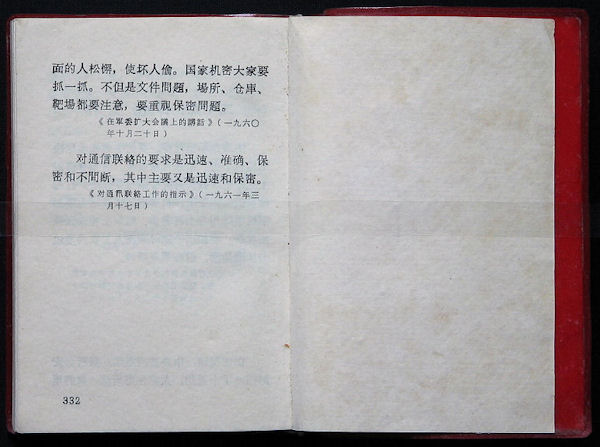 面的人松懈，使坏人偷。国家机密大家要
抓一抓。不但是文件問題，場所、仓庫、
靶場都要注意，要重視保密問題。
《在軍委扩大会議上的講話》（一九六〇
年十月二十日）
对通信联絡的要求是迅速、准确、保
密和不間断，其中主要又是迅速和保密。
《对通訊联絡工作的指示》（一九六一年三
月十七日）
332